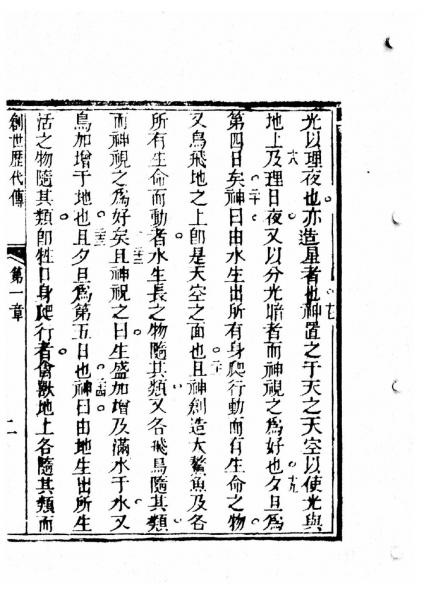 光以理夜也亦造星者也神置之于天之天空以使光與
地上及理日夜又以分光暗者而神視之爲好也夕旦爲
第四日矣神曰由水生出所有身爬行動而有生命之物
又鳥飛地之上卽是天空之面也且神創造大鰵魚及各
所有生命而動者水生長之物隨其類又各飛鳥隨其類
而神視之爲好矣且神祝之曰生盛加增及滿水于水又
鳥加增于地也且夕旦爲第五日也神曰由地生出所生
活之物隨其類卽牲口身爬行者禽獸地上各隨其類而
創世歷代傳 第一章 二